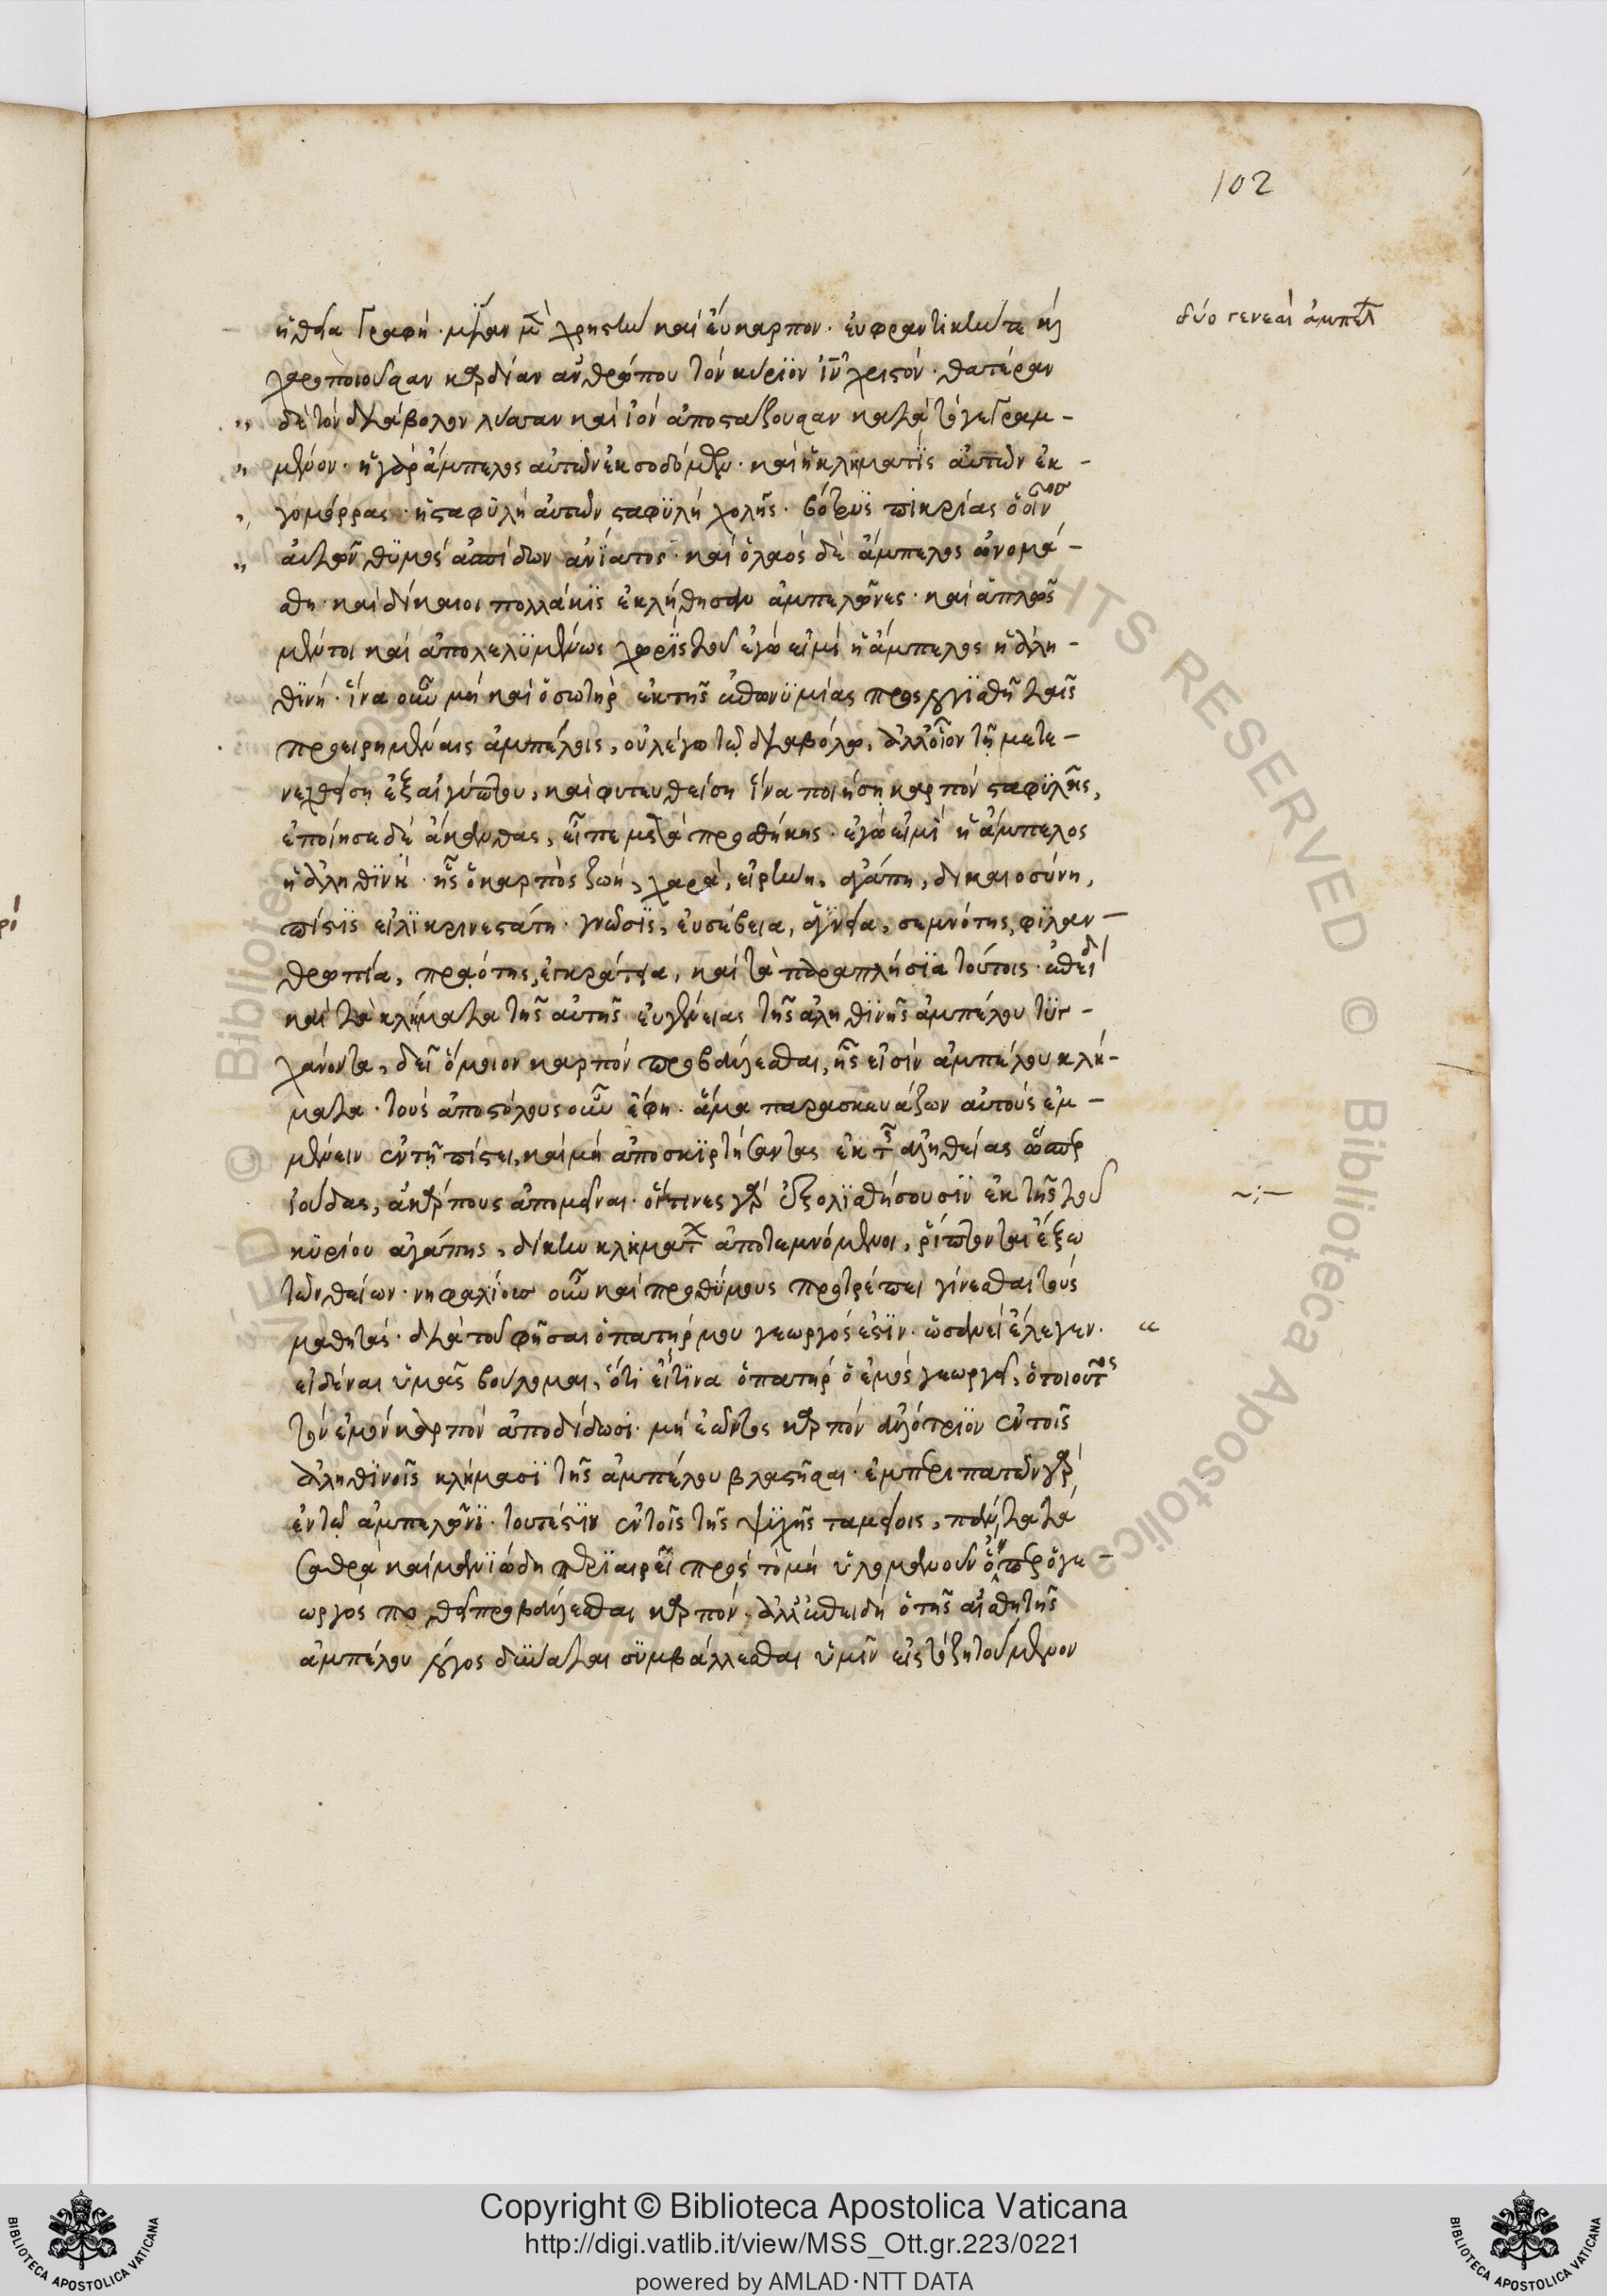 102
δύο γενεαὶ ἀμπέλ
ἡ θεία γραφή· μίαν μὲν χρηστὴν καὶ εὔκαρπον· εὐφραντικήν τε καὶ
χαροποιοῦσαν καρδίαν ἀνθρώπου τὸν κύριον ἰν χριστόν· θατέραν
δὲ τὸν διάβολον λύσσαν καὶ ἰὸν ἀποστάζουσαν κατὰ τὸ γεγραμ-
μένον· ἡ γὰρ ἄμπελος αὐτῶν ἐκ σοδόμων· καὶ ἡ κληματῒς αὐτῶν ἐκ-
γομόρρας· ἡ σταφϋλὴ αὐτῶν σταφϋλὴ χολῆς· βότρϋς πικρίας ὁ οἶν
αὐτῶν θϋμὸς ἀσπίδων ἀνΐατος· καὶ ὁ λαὸς δὲ ἄμπελος ὠνομά-
σθη· καὶ δίκαιοι πολλάκϊς ἐκλήθησαν ἀμπελῶνες· καὶ ἁπλῶς
μέντοι καὶ ἀπολελϋμένως χωρῒς τοῦ ἐγώ εἰμι ἡ ἄμπελος ἡ ἀλη-
θϊνή· ἵνα οὖν μὴ καὶ ὁ σωτὴρ ἐκ τῆς ὁμωνϋμίας προσεγγϊσθῆ ταῖς
προειρημέναις ἀμπέλοις, οὐ λέγω τῷ διαβόλῳ, ἀλλ' οἷον τῇ μετε-
νεχθείσῃ ἐξ αἰγύπτου, καὶ φυτευθείση ἵνα ποιήσῃ καρπὸν σταφϋλῆς,
ἐποίησε δὲ ἀκάνθας, εἶπε μετὰ προσθήκης· ἐγώ εἰμϊ ἡ ἄμπελος
ἡ ἀληθϊνή· ἧς ὁ καρπὸς ζωή, χαρά, εἰρήνη, ἀγάπη, δικαιοσύνη,
πίστϊς εἰλϊκρινεστάτη· γνῶσϊς, εὐσέβεια, ἁγνεία, σεμνότης, φϊλαν-
θρωπία, πραότης, ἐγκράτεια, καὶ τὰ παραπλήσϊα τούτοις· ἐπεὶ
καὶ τὰ κλήματα τῆς αὐτῆς εὐγενείας τῆς ἀληθϊνῆς ἀμπέλου τϋγ-
χάνοντα, δεῖ ὅμοιον καρπὸν προβάλλεσθαι, ἧς εἰσὶν ἀμπέλου κλή-
ματα· τοὺς ἀποστόλους οὖν ἔφη· ἅμα παρασκευάζων αὐτοὺς ἐμ-
μένειν ἐν τῇ πίστει, καὶ μὴ ἀποσκϊρτήσαντας ἐκ τῆς ἀληθείας ὥσπερ
ἰούδας, ἀκάρπους ἀπομεῖναι· οἵτινες γὰρ ἐξολϊσθήσουσϊν ἐκ τῆς τοῦ
κϋρίου ἀγάπης, δίκην κλημάτων ἀποτεμνόμενοι, ῥίπτονται ἔξω
τῶν θείων· νηφαλίους οὖν καὶ προθϋμους προτρέπει γίνεσθαι τοὺς
μαθητάς· διὰ τοῦ φῆσαι ὁ πατήρ μου γεωργός ἐστϊν· ὡσανεὶ ἔλεγεν·
εἰδέναι ὑμᾶς βούλομαι, ὅτι εἴ τϊνα ὁ πατὴρ ὁ ἐμὸς γεωργεῖ, ὁ τοιοῦτος
τὸν ἐμὸν καρπὸν ἀποδίδωσι· μὴ ἐῶντος καρπὸν ἀλλότρϊον ἐν τοῖς
ἀληθϊνοῖς κλήμασϊ τῆς ἀμπέλου βλαστῆσαι· ἐμπεριπατῶν γὰρ
ἐν τῷ ἀμπελῶνϊ· τουτέστϊν ἐν τοῖς τῆς ψϋχῆς ταμείοις, πάντα τὰ
σαθρὰ καὶ μανϊώδη περϊαιρεῖ πρὸς τὸ μὴ ὑλομανοῦν ὅπερ ὁ γε-
ωργὸς ποθεῖ προβάλλεσθαι καρπόν· ἀλλ' ἐπειδὴ ὁ τῆς αἰσθητῆς
ἀμπέλου λόγος δύναται σϋμβάλλεσθαι ὑμῖν εἰς τὸ ζητούμενον
Copyright © Biblioteca Apostolica Vaticana
http://digi.vatlib.it/view/MSS_Ott.gr.223/0221
powered by AMLAD·NTT DATA